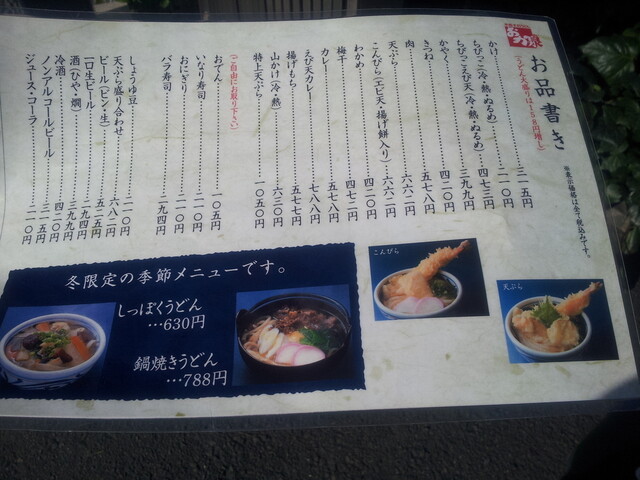 お品書き
(うどん大盛りは158円増し)
※表示価格は全て税込みです。
かけ……三一五円
ちびっこ(冷・熱・ぬるめ)……二一〇円
ちびっこえび天(冷・熱・ぬるめ)……四七三円
かやく……三九九円
きつね……四二〇円
肉……五七八円
天ぷら……六六二円
こんぴら(エビ天・揚げ餅入り)……六六二円
わかめ……四二〇円
梅干……四七二円
カレー……五七八円
えび天カレー……七八八円
揚げもち……五七七円
山かけ(冷・熱)……六三〇円
特上天ぷら……一〇五〇円
(ご自由にお取り下さい)
おでん……一〇五円
いなり寿司……二一〇円
おにぎり……二一〇円
バラ寿司……二九四円
しょうゆ豆……二一〇円
天ぷら盛り合わせ……六八二円
ビール(ビン・生)……五二五円
一口生ビール……二九四円
酒(ひや・燗)……三九九円
冷酒……四二〇円
ノンアルコールビール……三一五円
ジュース・コーラ……二一〇円
冬限定の季節メニューです。
しっぽくうどん
…630円
鍋焼きうどん
…788円
こんぴら
天ぷら